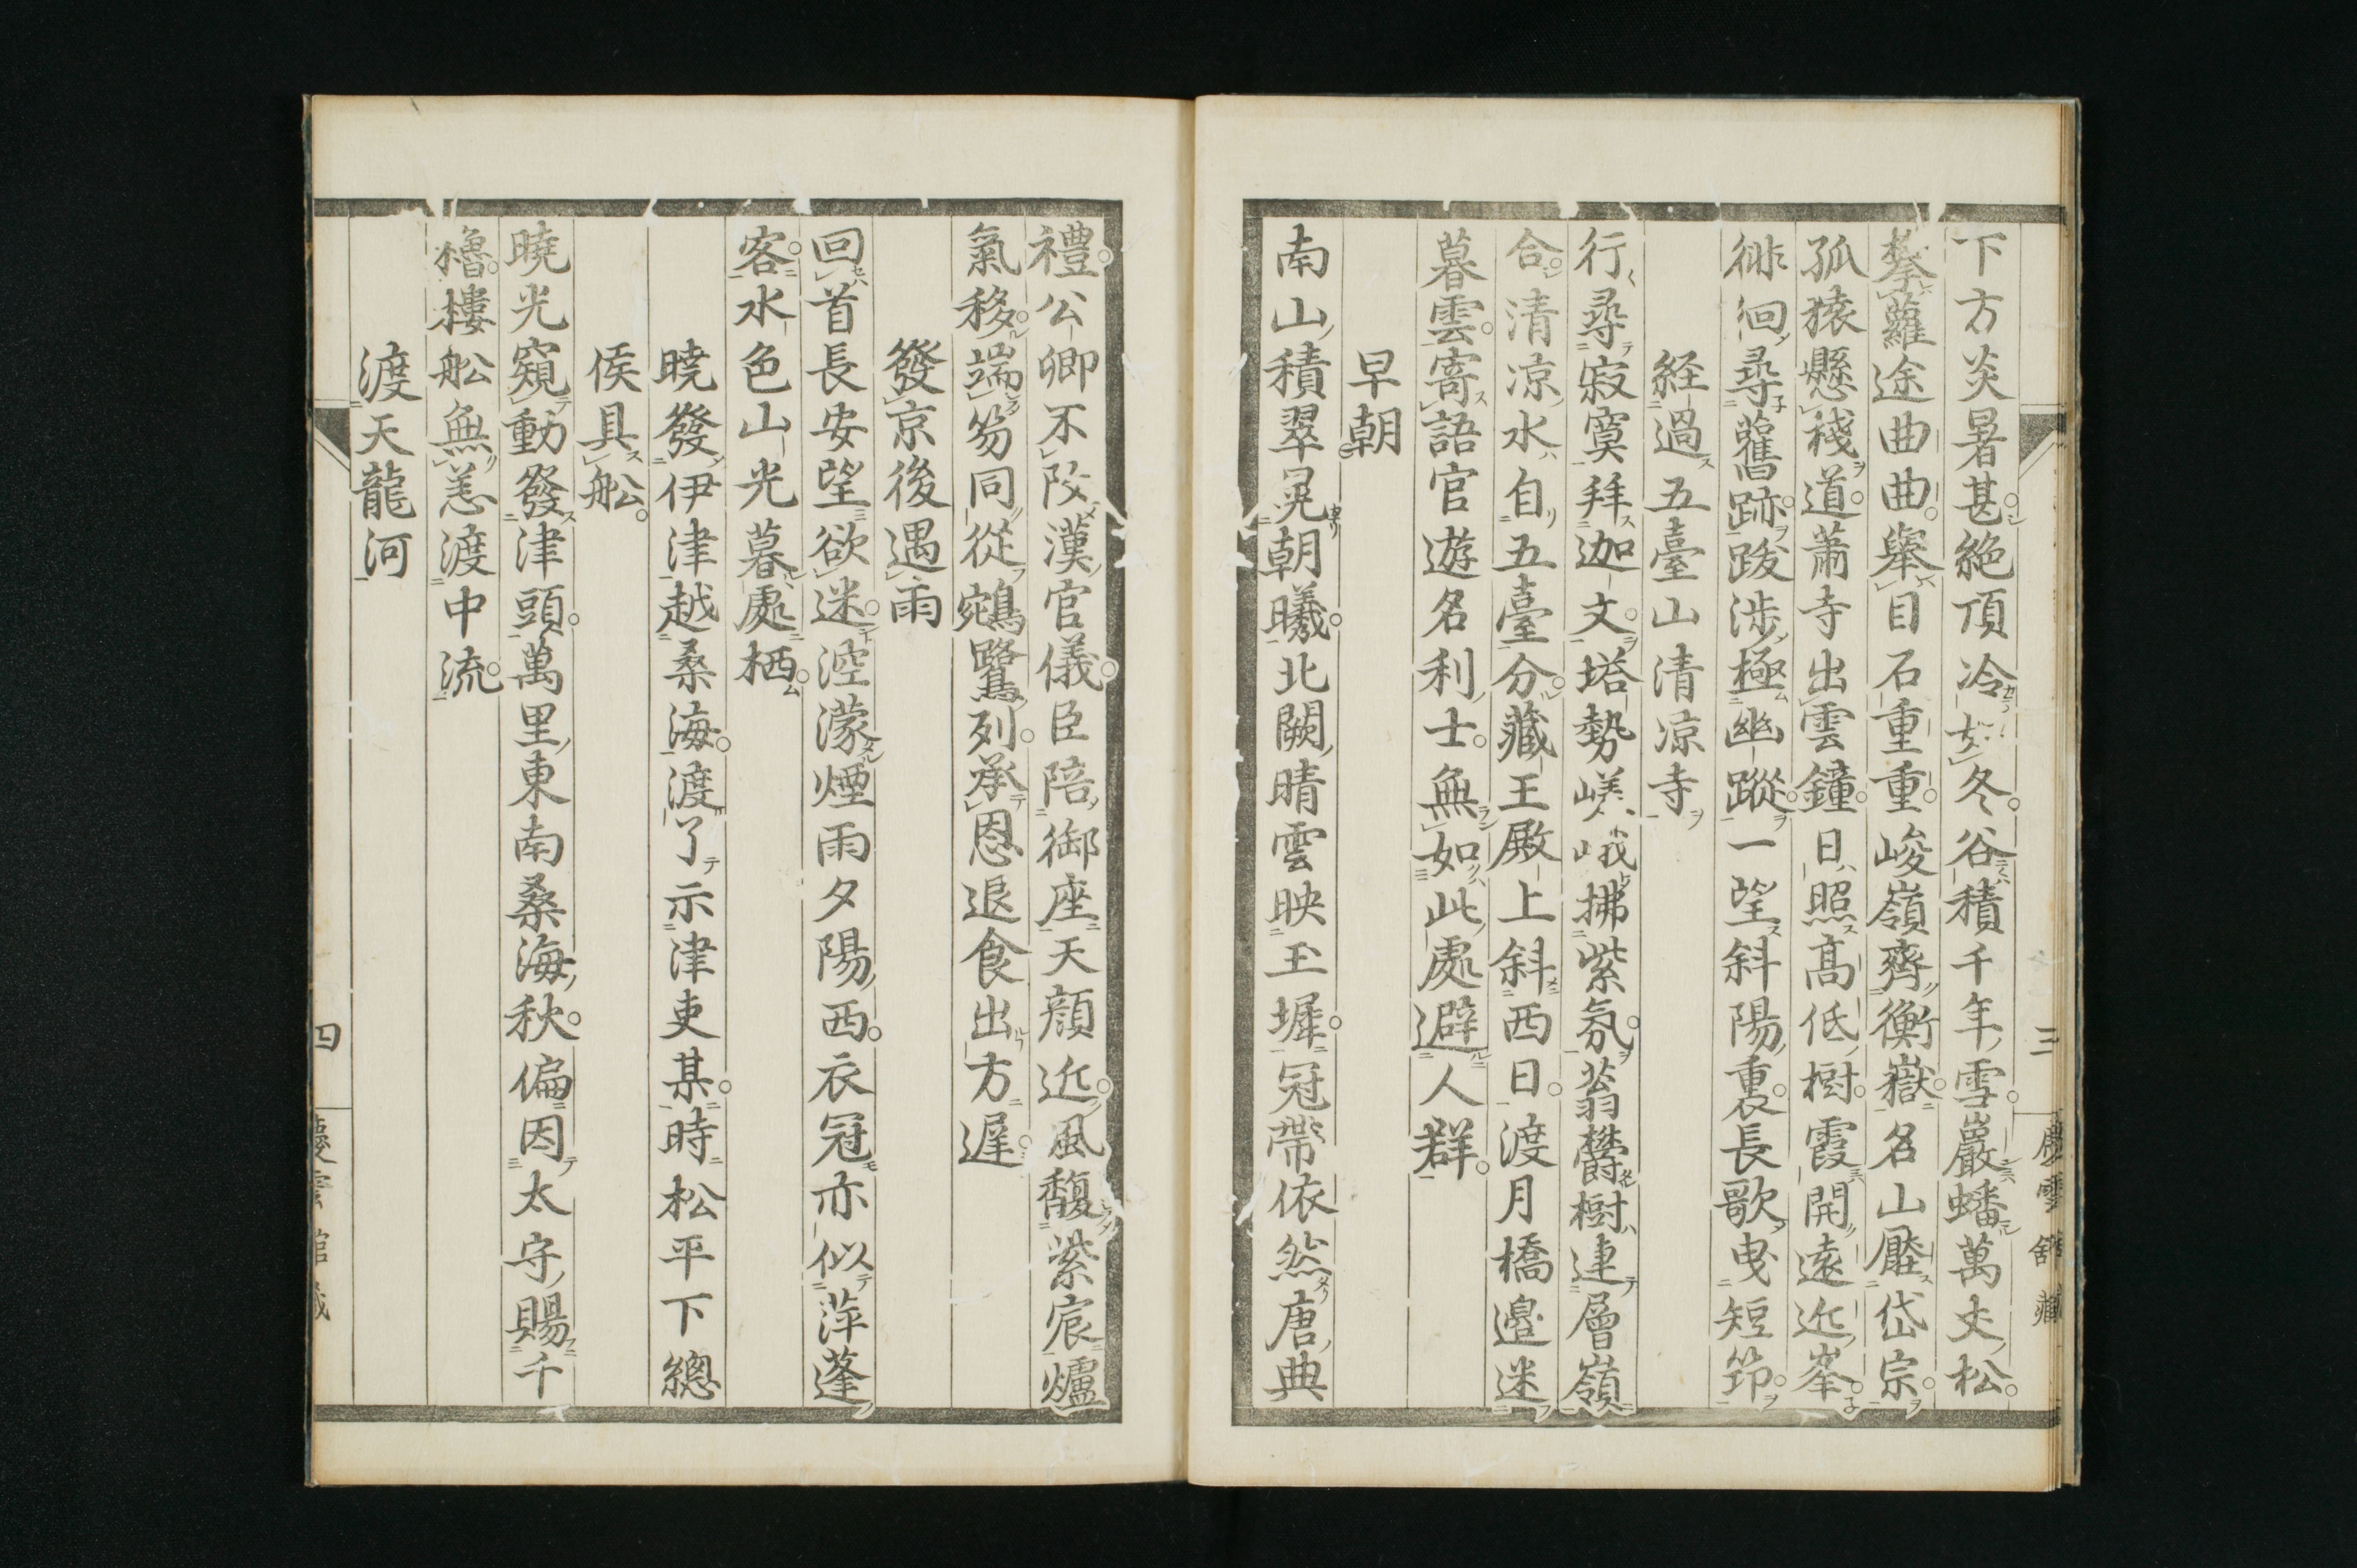 下方炎暑甚絶頂冷如冬谷積千年雪巖蟠萬丈松
攀蘿途曲曲擧目石重重峻嶺齊衡嶽名山壓岱宗
孤猿懸棧道蕭寺出雲鐘日照高低樹霞開遠近峯
徘徊尋舊跡跋涉極幽蹤一望斜陽裏長歌曳短筇
経過五臺山清凉寺
行尋寂寞拜迦文塔勢嵯峨拂紫氛蓊欝樹連層嶺
合清凉水自五臺分藏王殿上斜西日渡月橋邉迷
暮雲寄語官遊名利士無如此處避人群
早朝
南山積翠晃朝曦北闕晴雲映玉墀冠帶依然唐典
三
禮公卿不改漢官儀臣陪御座天顔近風馥紫宸爐
氣移端笏同從鵷鷺列承恩退食出方遲
發京後遇雨
回首長安望欲迷涳濛煙雨夕陽西衣冠亦似萍蓬
客水色山光暮處栖
暁發伊津越桑海渡了示津吏某時松平下總
侯具舩
曉光窺動發津頭萬里東南桑海秋偏因太守賜千
櫓樓舩無恙渡中流
渡天龍河
四